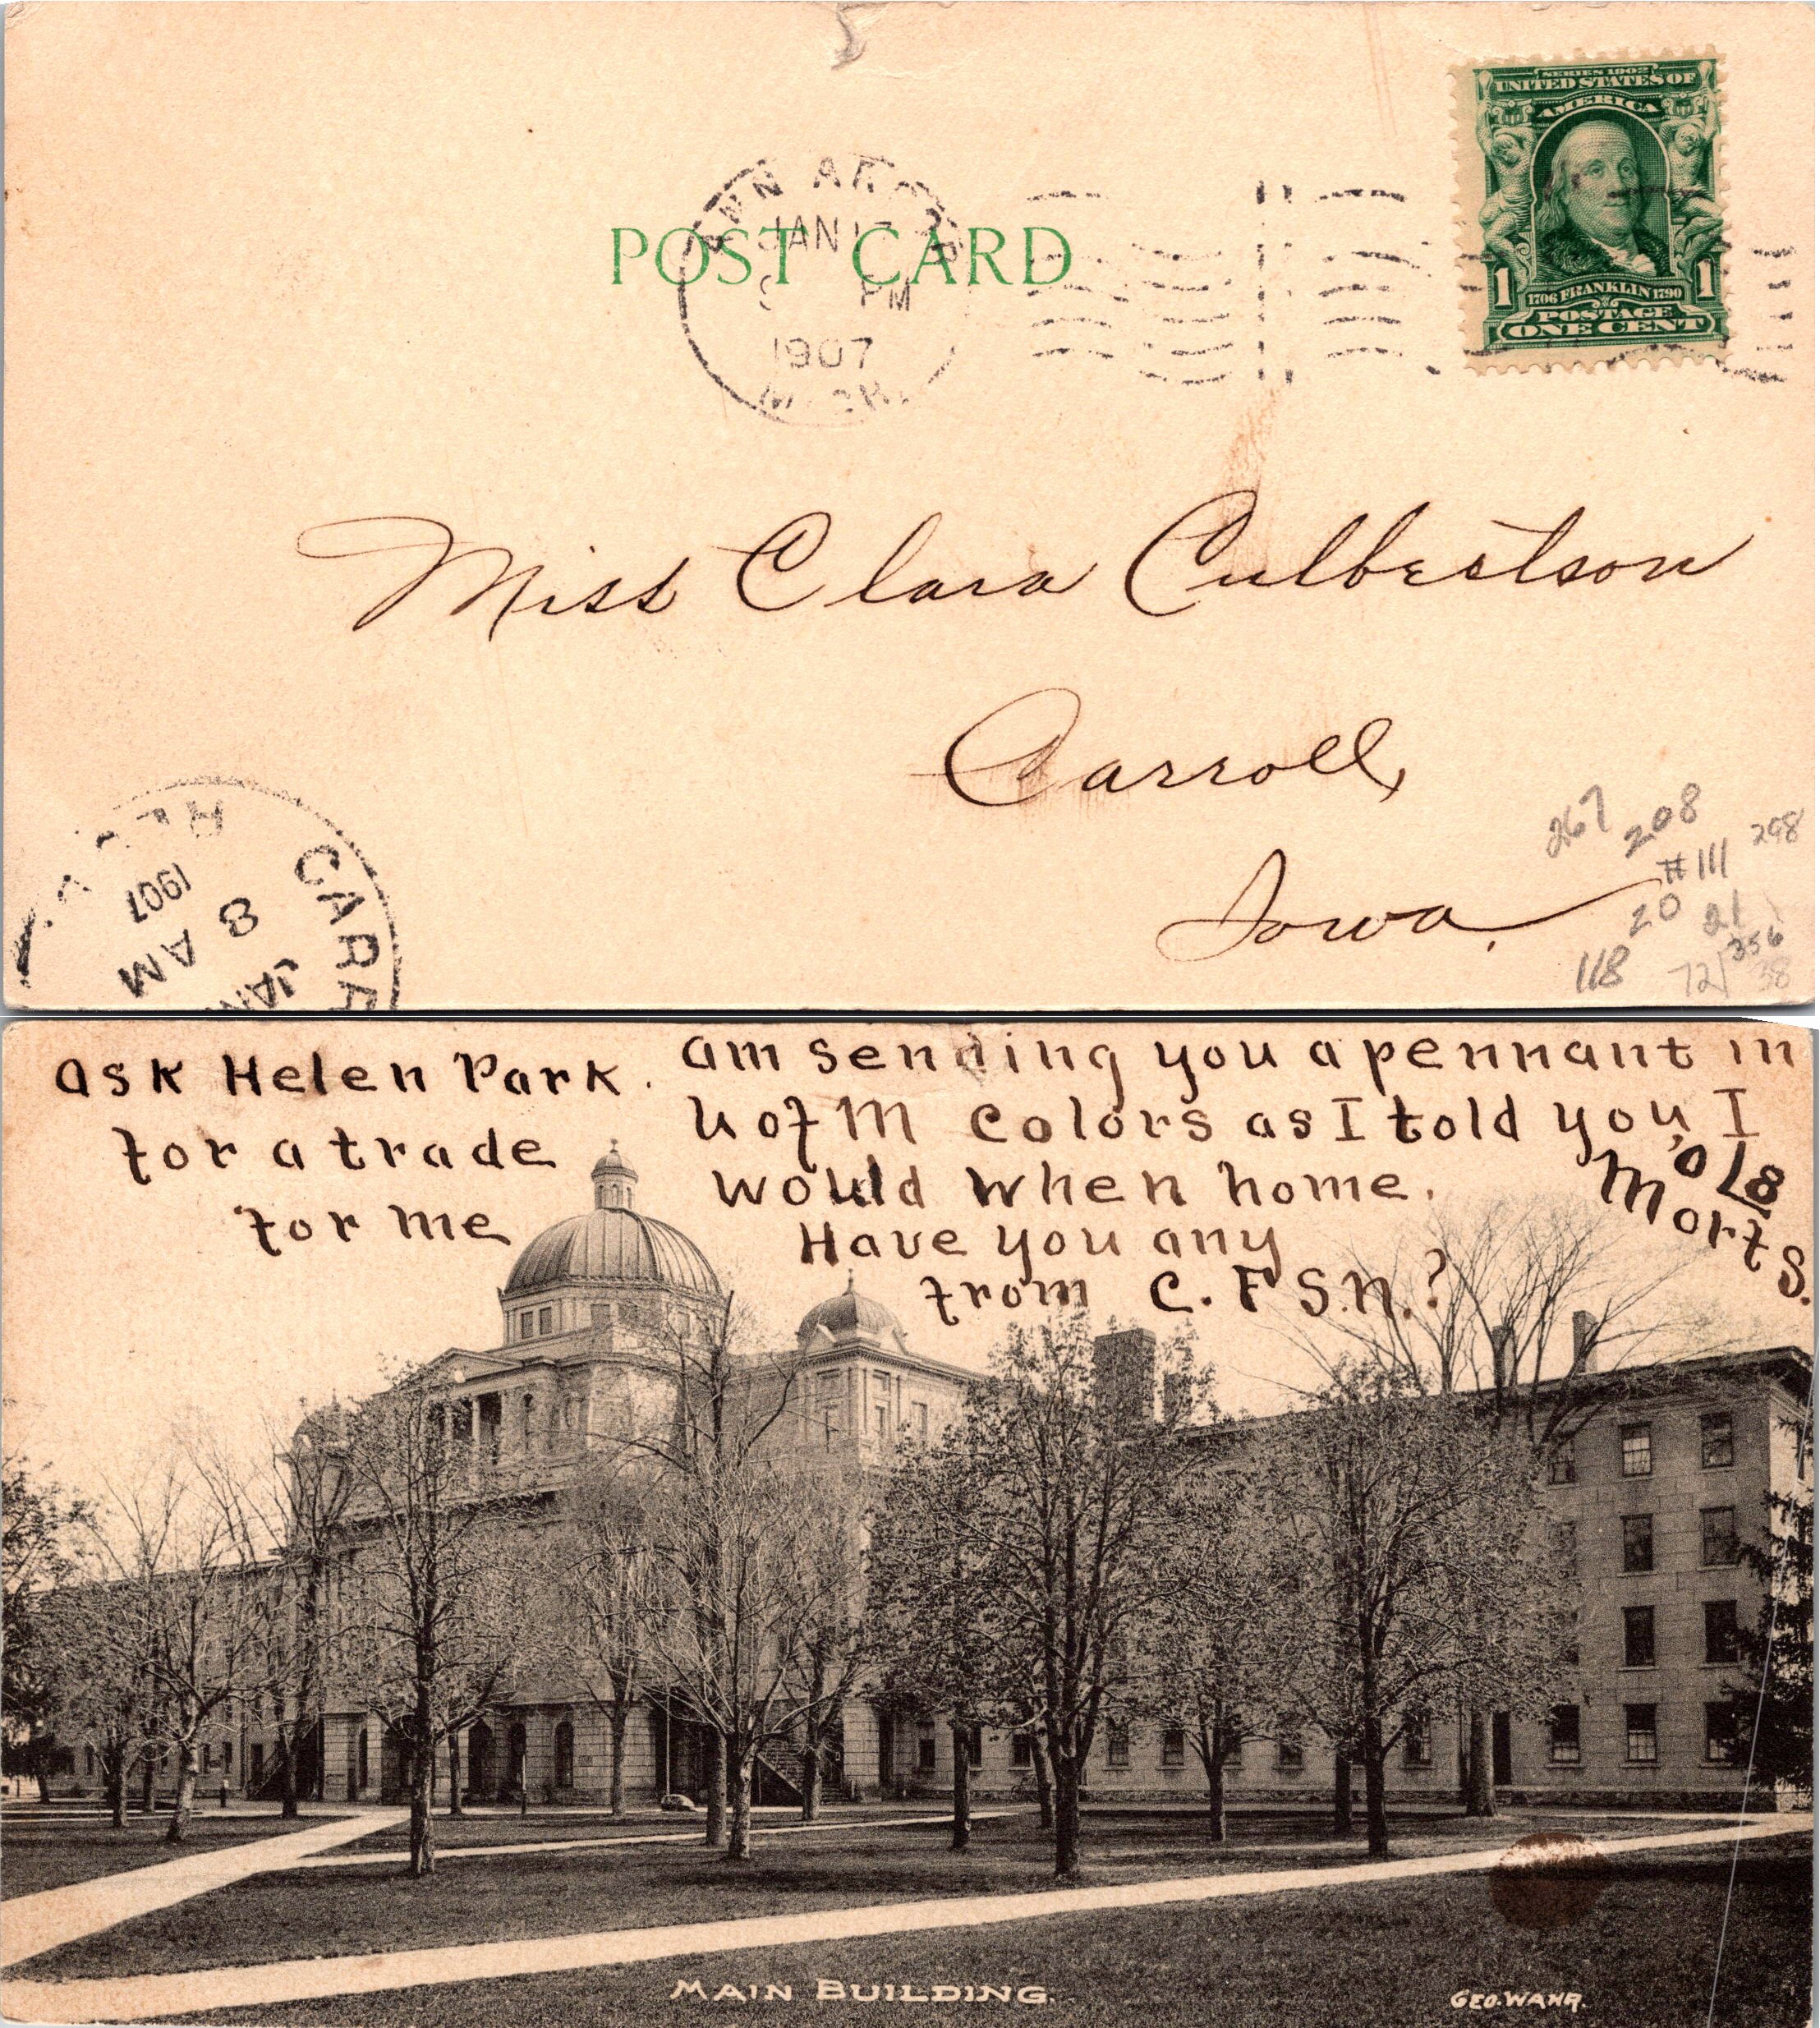 SERIES 1902
UNITED STATES OF
AMERICA
1706 FRANKLIN 1790
1 1
POSTAGE
ONE CENT
ANN ARBOR
JAN 17
PM
1907
MICH.
POST CARD
Miss Clara Culbertson
Carroll,
Iowa.
CARR
JAN
8 AM
1907
REC'D.
267 208 298
#111
20 21
356
118 72 38
ask Helen Park.
for a trade
for me
am sending you a pennant in
U of M colors as I told you, I
would when home.
Have you any
from C. F S. N.?
'08
Mort S.
MAIN BUILDING.
GEO. WAHR.